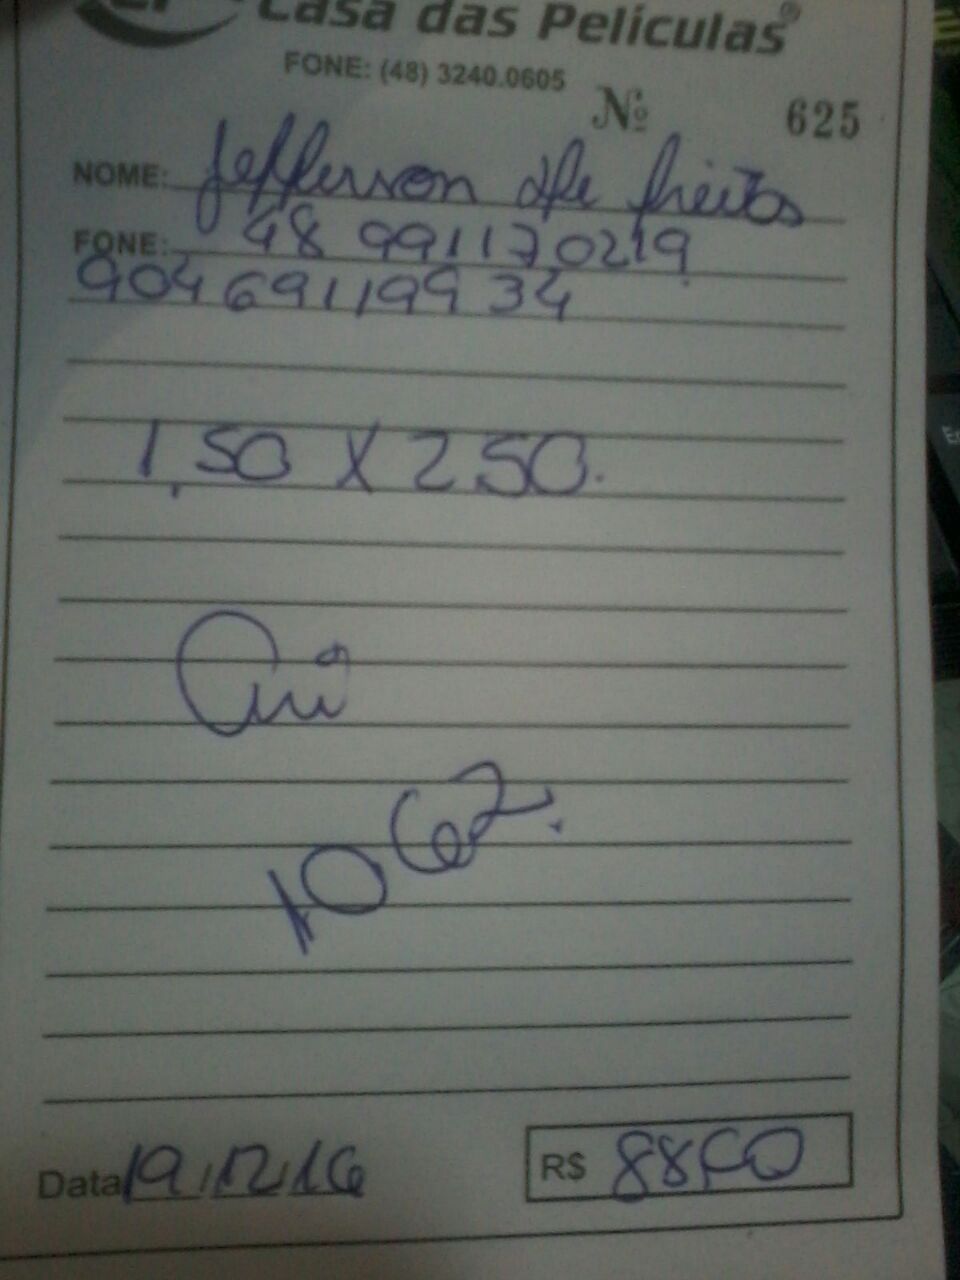 Casa das Películas®
FONE: (48) 3240.0605
Nº 625
NOME: Jefferson de freitas
FONE: 48 991170219
904 691199 34
1,50 X 250.
10 62.
Data 19/12/16 R$